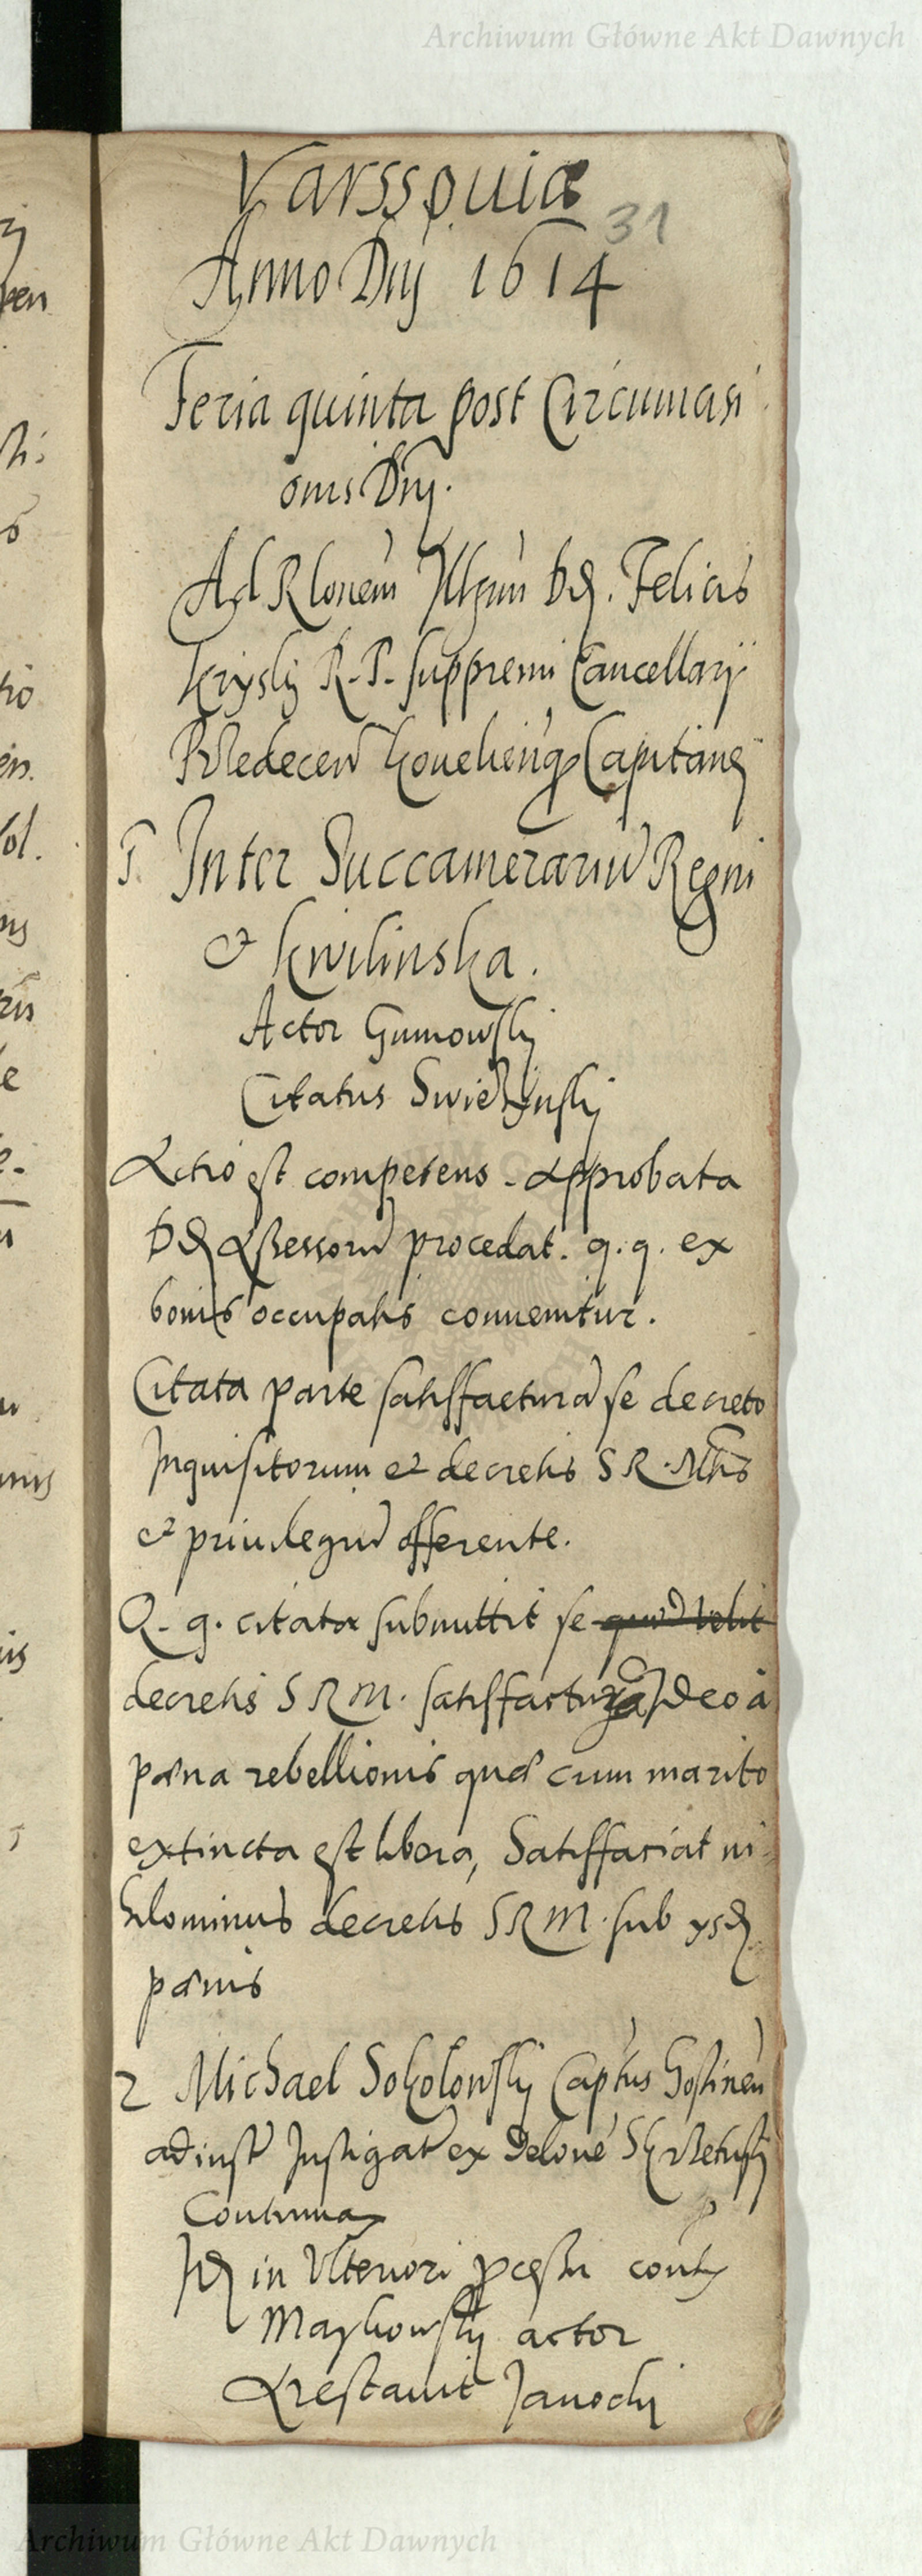 Archiwum Główne Akt Dawnych
Varssouiæ
31
Anno Dnj 1614
Feria quinta post Circumcisi
onis Dnj.
Ad Rlonem Felicis
Krysky R. P. supremi Cancellarij
Capitanej
1. Inter Succamerariu Regni
et Kwilinska.
Actor Gumowsky
Citatus
Actio est competens. Approbata
Assessoru procedat. q. q. ex
bonis occupatis conuenitur.
Citata parte satisfactura se decreto
Inquisitorum et decretis S R. Mtis
et priuilegiu offerente.
Q. q. citata submittit se
decretis S R M. satisfactura Ideo à
pæna rebellionis quæ cum marito
extincta est libera, Satisfaciat ni
hilominus decretis S R M. sub ysd
pænis
2 Michael Sokolowsky Captus Gostinen
ad inst Instigat ex Delone
Continua
Id in Vlteriori pcessu contr
Maykowsky actor
Arestauit Janocki
Archiwum Główne Akt Dawnych